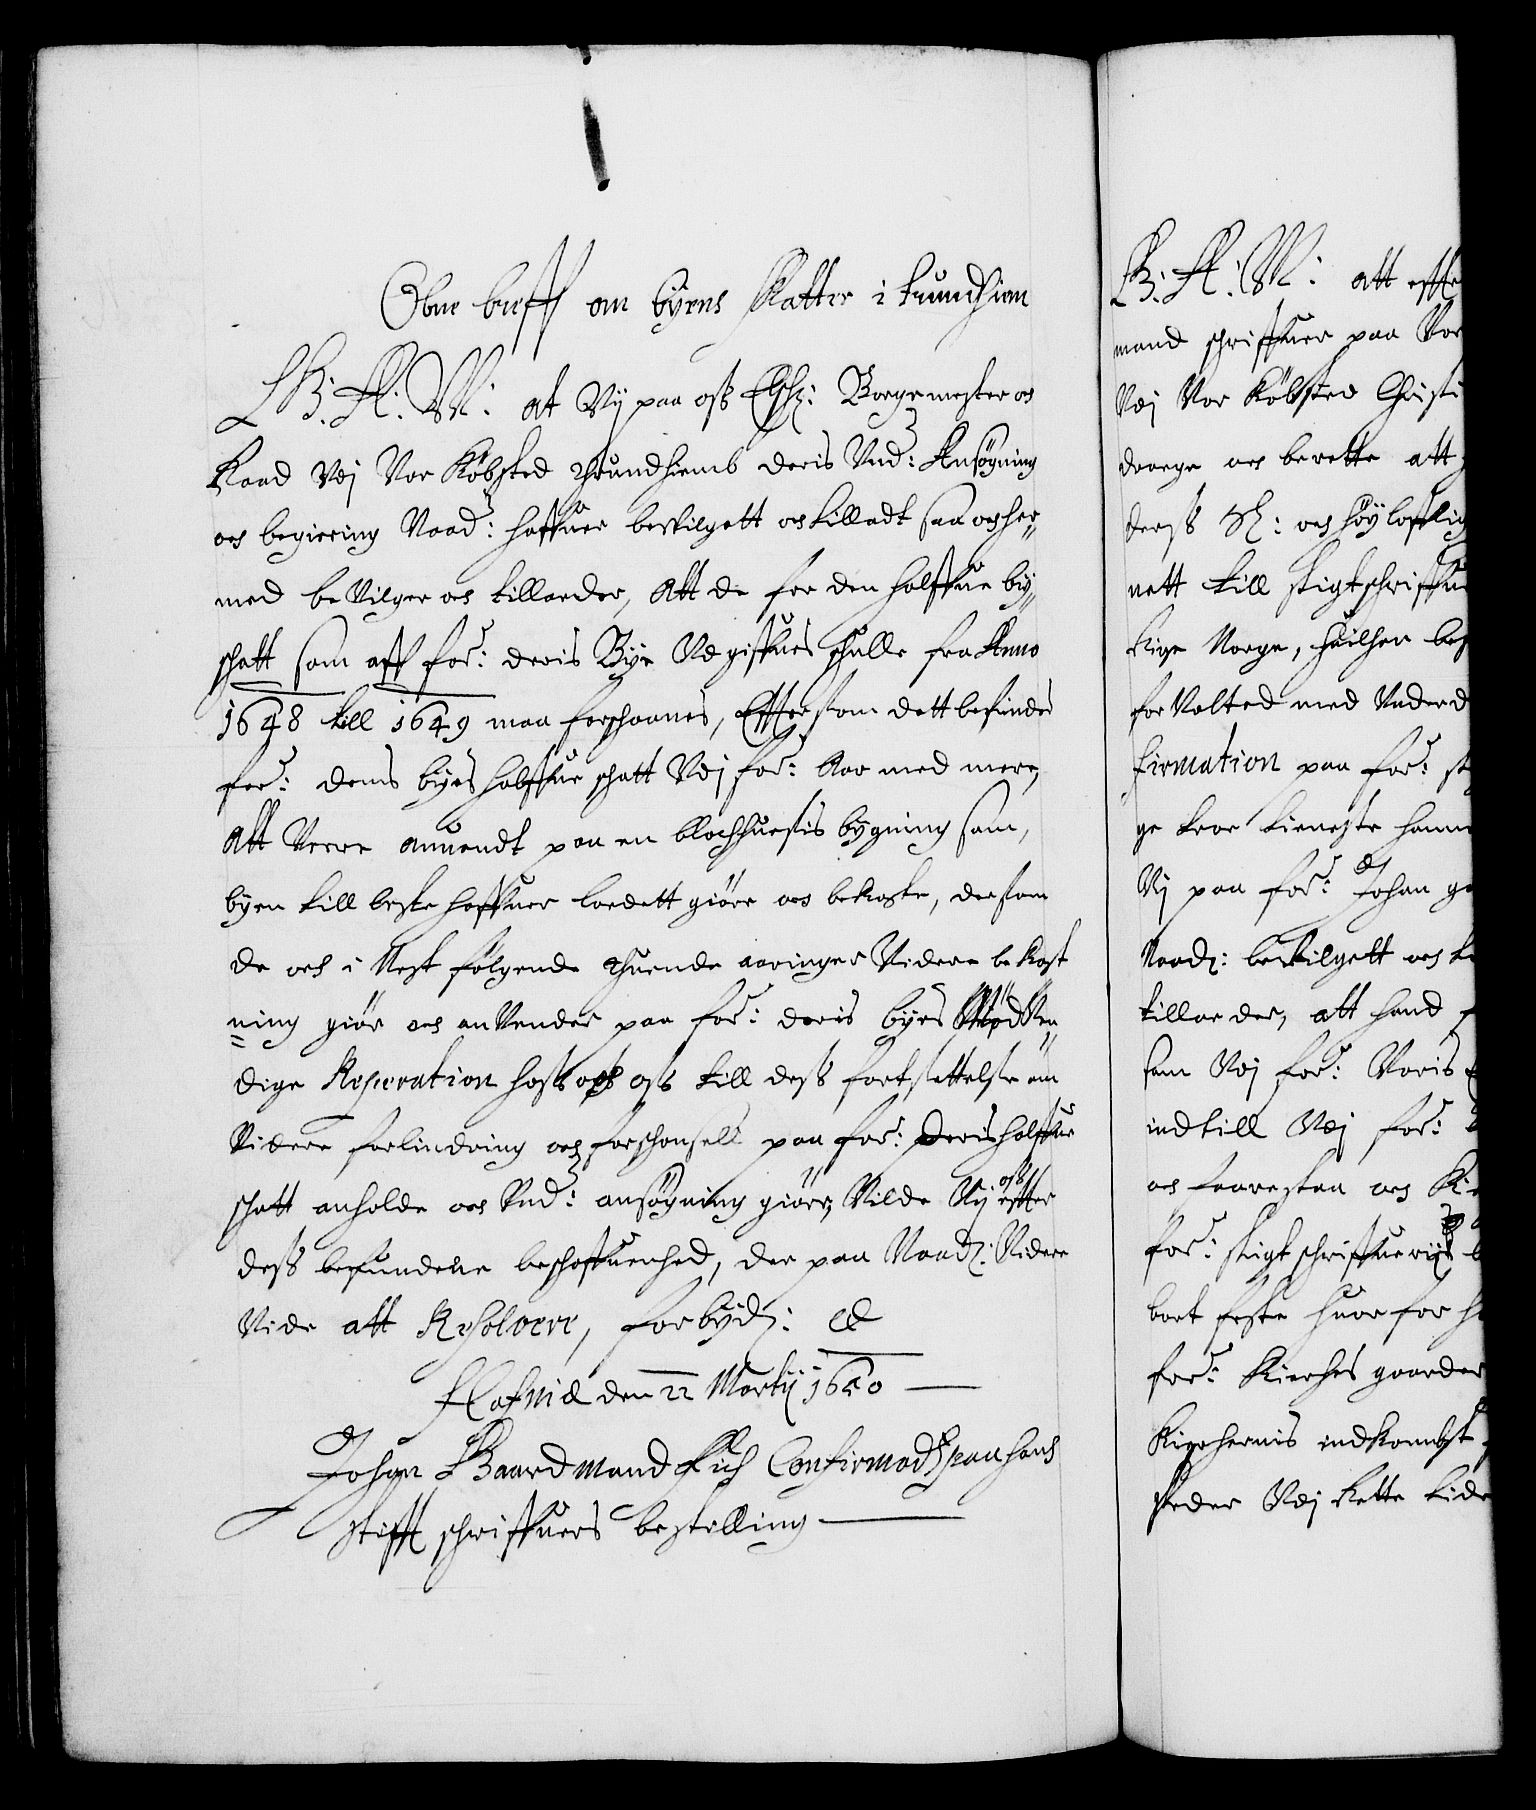 Obne breff om byens skatter i trundhiem
G: A: W: at Vij paa oss Elsch: Borgemester och
Raad Vdj Vor Kiöbsted Thrundhiemb deris Und: Ansögning
och begiering Naad: haffuer beuilgett och tilladt saa och her¬
med be Vilger och tillader, Att de for den halffue bij¬
schatt som aff for: deris Bÿe Vdgiffues schulle fra Anno
1648 till 1649 maa forschaanes, Effter som dett befindes
for: deris byes halffue schatt Vdj for: Aar med mere,
Att Verre anuendt paa en blochhuesis bygning som,
byen till beste haffuer ladett giöre och bekoste, der som
de och i Nest fölgende thuende aaringer Videre be kost
ning giör och an Vender paa for: deris byes Nödven
dige Reperation hoss oss till dess fortsettelse om
Videre forlindring och forschonsell paa for: deris halffue
schatt anholde och Und: ansögning giöre, Vilde Vij oss effter
dess befundene beschaffuenhed, der paa Naadl: Videre
Vide att Resolvere, forbyd: &
Hafniæ den 22 Martij 1650
Johan Baardmand fich Confirmads paa hans
stifft schriffuers bestelling
G: A: W: att effte
mand schriffuer paa Vor
Vdj Vor Kiöbsted Christi
drage och berette att
derss Sl: och höylofflig
nett till stigtschriffue
Rige Norge, huilchen bes
for Valted med Underd
firmation paa for: st
ge troe tieneste hanne
Vij paa for: Johan g
Naadl: beuilgett och t
tillader, att hand
som Vdj for: Voris
indtill Vdj for:
och forrestaa och Ki
for: stigt schriffuerij
bort feste huorfor h
for: Kierches gaarder
Kirchernis indkombst
steder Vdj Rette tide